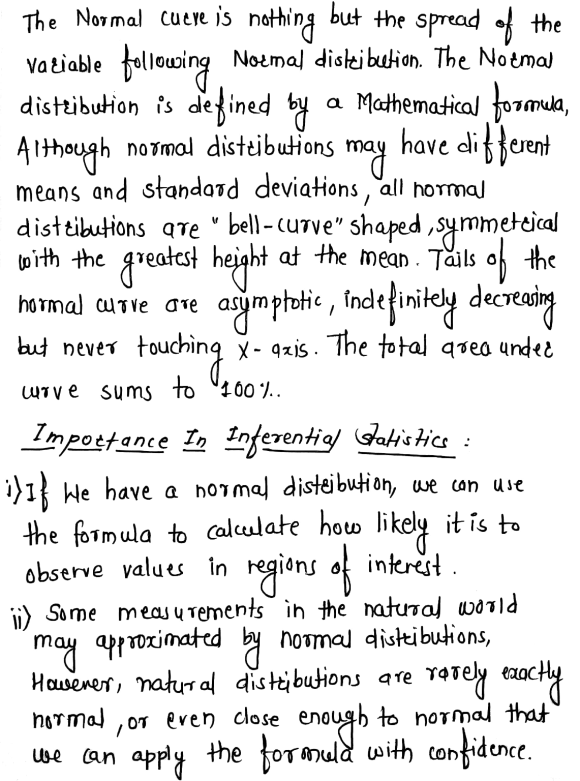 The Normal curve is nothing but the spread of the
variable following Normal distribution. The Normal
distribution is defined by a Mathematical formula,
Although normal distributions may have different
means and standard deviations, all normal
distributions are "bell-curve" shaped, symmetrical
with the greatest height at the mean. Tails of the
normal curve are asymptotic, indefinitely decreasing
but never touching x-axis. The total area under
curve sums to 100%.
Importance In Inferential Statistics :
i) If We have a normal distribution, we can use
the formula to calculate how likely it is to
observe values in regions of interest.
ii) Some measurements in the natural world
may approximated by normal distributions,
However, natural distributions are rarely exactly
normal, or even close enough to normal that
we can apply the formula with confidence.